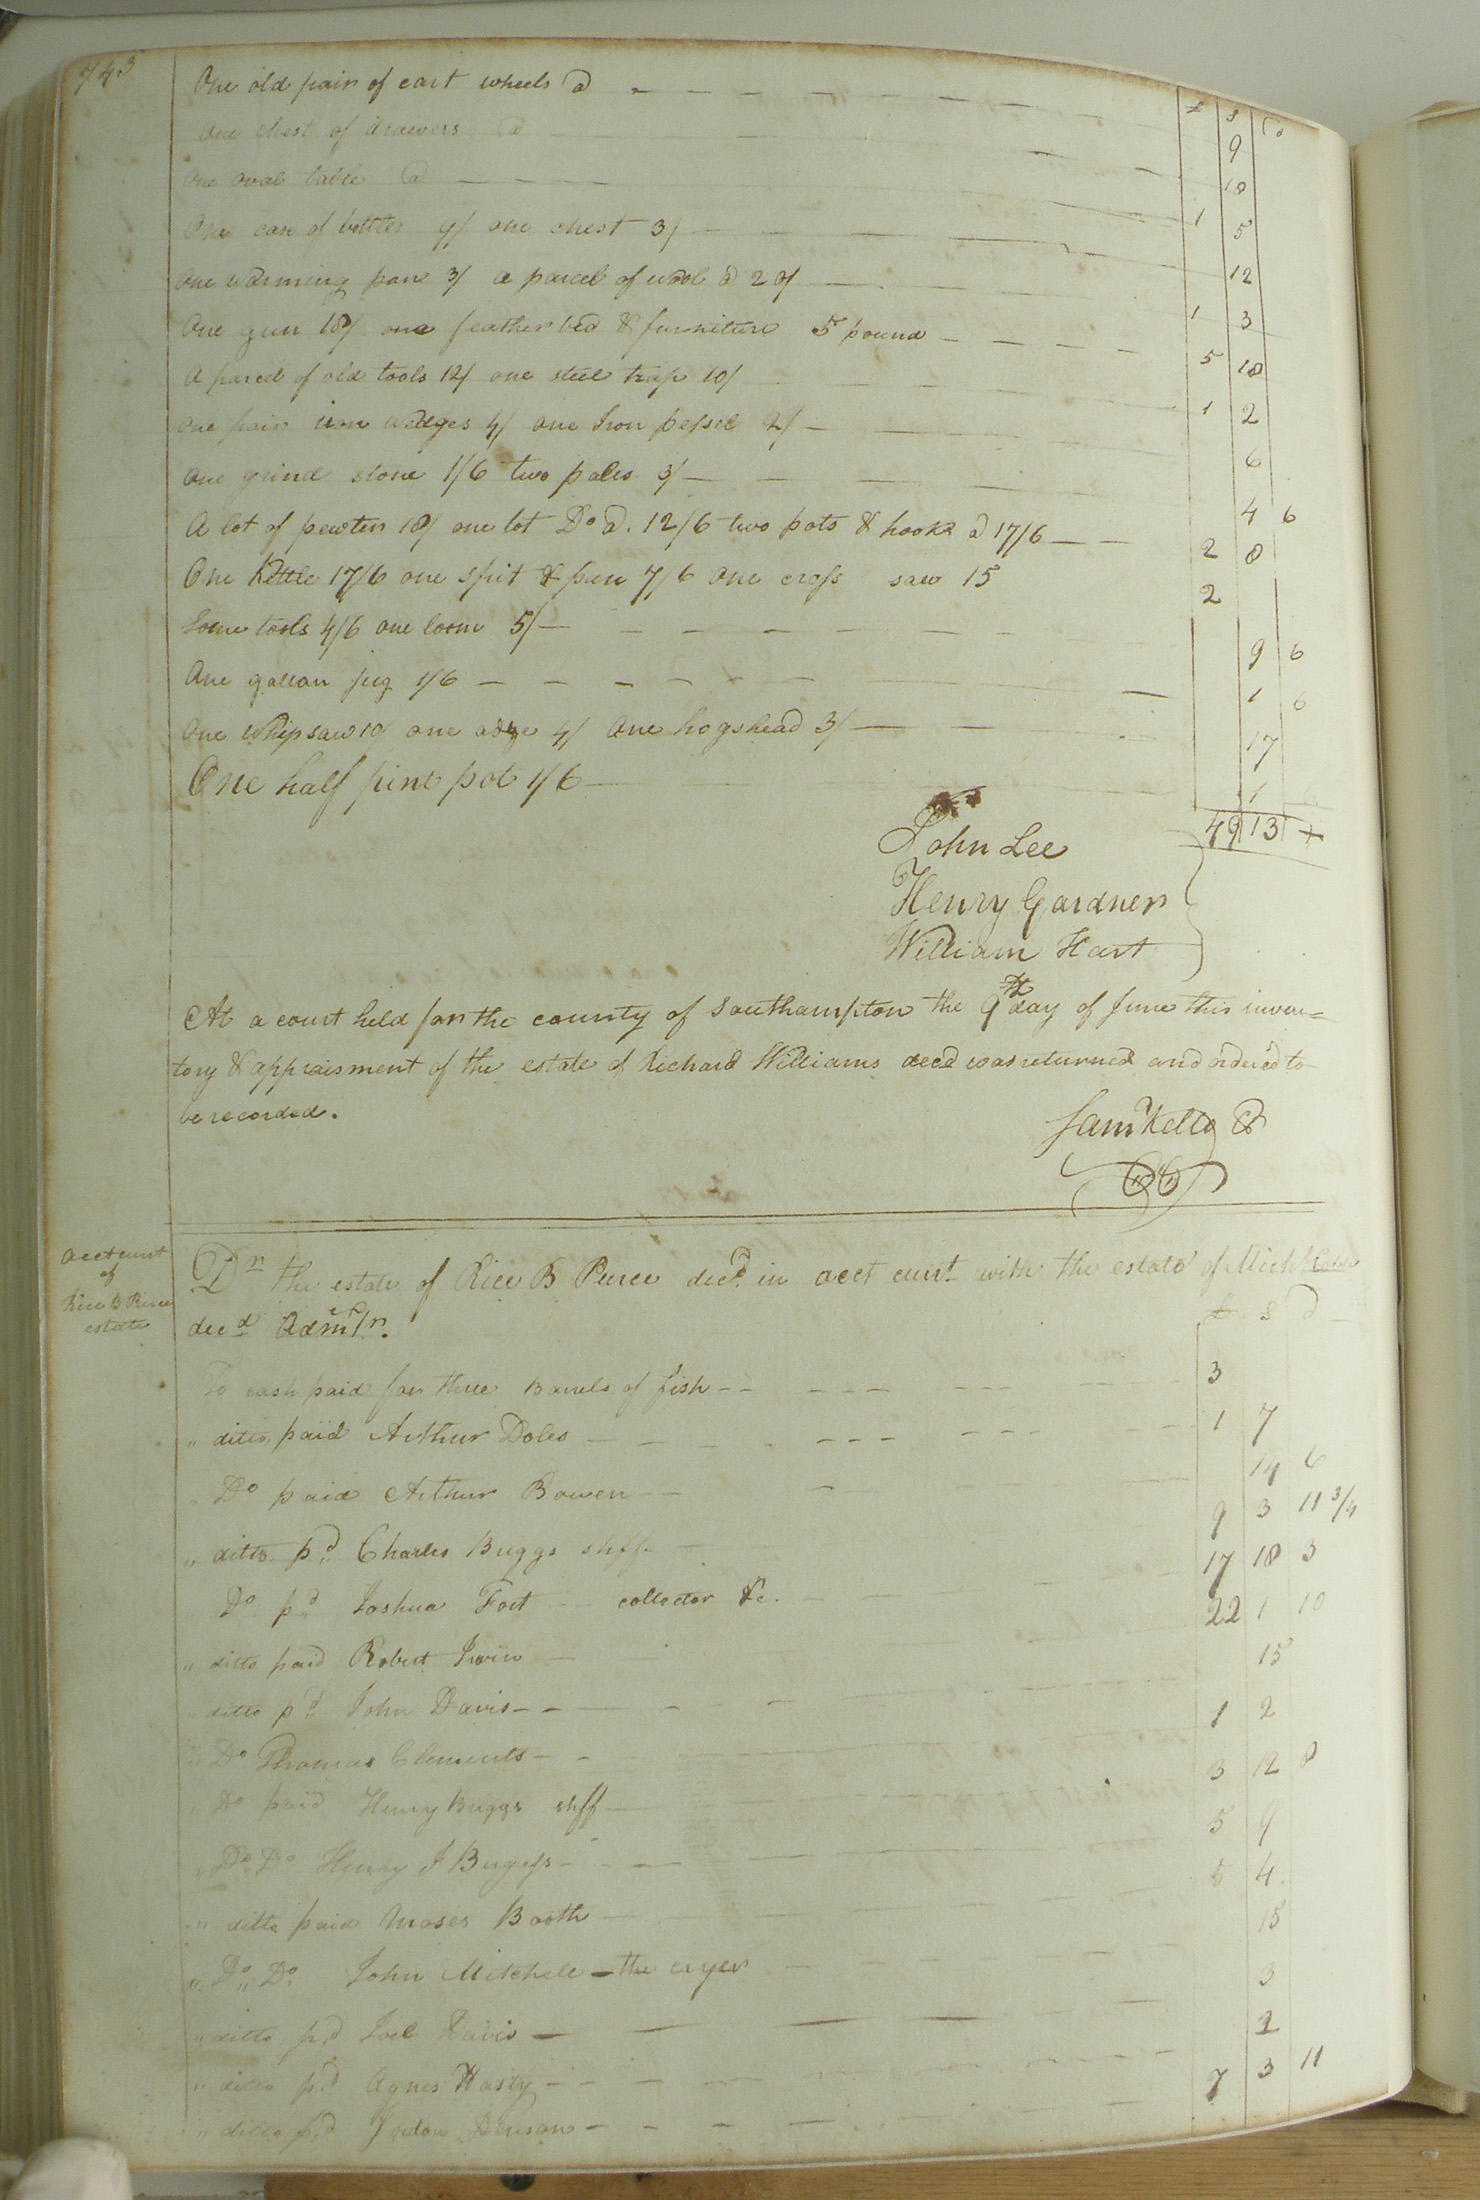 743
£ S D
One old pair of cart wheels @ 9
One chest of drawers @ 18
One oval table @ 1 5
One case of bottles 9/ one chest 3/ 12
One warming pan 3/ a parcel of wool @ 20/ 1 3
One gun 18/ one feather bed & furniture 5 pound 5 18
A parcel of old tools 12/ one steel trap 10/ 1 2
one pair iron wedges 4/ one Iron pessel 2/ 6
One grind stone 1/6 two pales 3/ 4 6
A lot of pewter 18/ one lot Do @. 12/6 two pots & hooks @ 17/6 2 8
One Kettle 17/6 one spit & pan 7/6 one cross saw 15 2
Some tools 4/6 one loom 5/ 9 6
One gallon jug 1/6 1 6
One whipsaw 10/ one adze 4/ one hogshead 3/ 17
One half pint pot 1/6 1 6
49 13
John Lee
Henry Gardner
William Hart
At a court held for the county of Southampton the 9th day of June this inven=
tory & appraisment of the estate of Richard Williams decd was returned and ordered to
be recorded.
Saml Kello
Account
of
Rice B Pierce
estate
Dr The estate of Rice B Pierce decd. in acct curt. with the estate of Mich
decd Admr.
£ S D
To cash paid for three Barrels of fish 3
" ditto paid Arthur Doles 1 7
" Do paid Arthur Bowen 14 6
" ditto pd Charles Buggs shff. 9 3 11 3/4
Do pd Joshua Fort collector &c. 17 18 3
" ditto paid Robert Irwin 22 1 10
" ditto pd John Davis 15
" Do Thomas Clements 1 2
" Do paid Henry Buggs shff 3 12 8
" Do Do Henry J Burgess 5 9
" ditto paid Moses Booth 5 4
" Do " Do John Mitchell the cryer 15
" ditto pd Joel Davis 3
" ditto pd Agnes Hasty 2
" ditto pd Jordan Denson 7 3 11